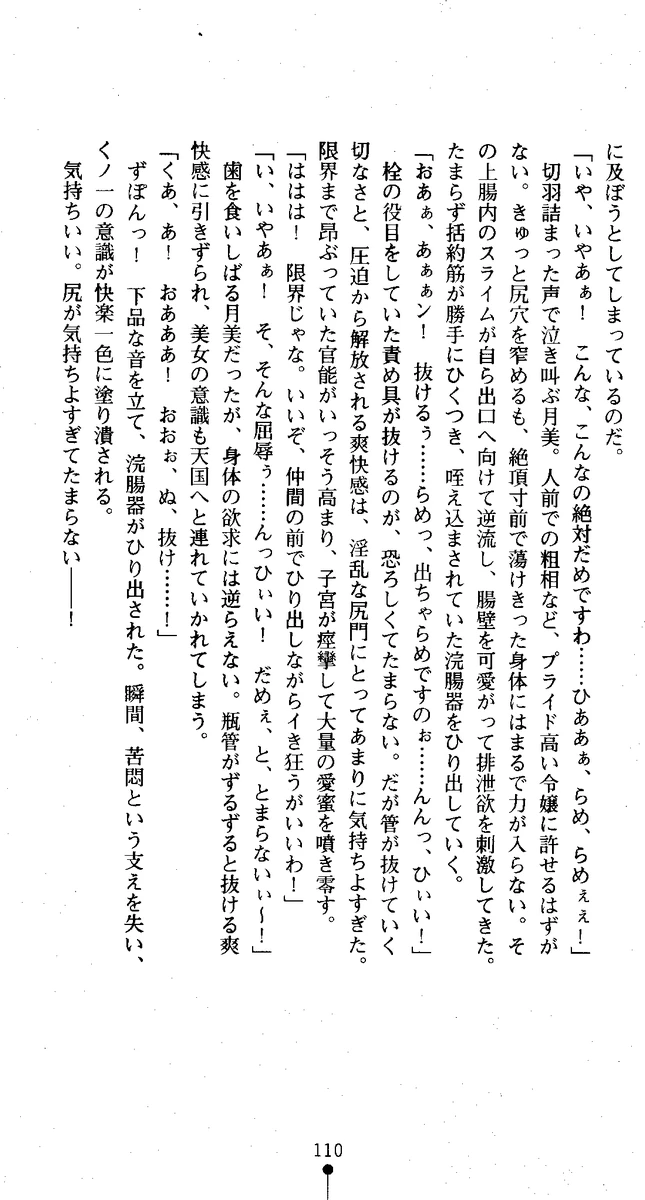 に及ぼうとしてしまっているのだ。
「いや、いやあぁ！　こんな、こんなの絶対だめですわ……ひああぁ、らめ、らめぇぇ！」
　切羽詰まった声で泣き叫ぶ月美。人前での粗相など、プライド高い令嬢に許せるはずが
ない。きゅっと尻穴を窄めるも、絶頂寸前で蕩けきった身体にはまるで力が入らない。そ
の上腸内のスライムが自ら出口へ向けて逆流し、腸壁を可愛がって排泄欲を刺激してきた。
たまらず括約筋が勝手にひくつき、咥え込まされていた浣腸器をひり出していく。
「おあぁ、あぁぁン！　抜けるぅ……らめっ、出ちゃらめですのぉ……んんっ、ひぃい！」
　栓の役目をしていた責め具が抜けるのが、恐ろしくてたまらない。だが管が抜けていく
切なさと、圧迫から解放される爽快感は、淫乱な尻門にとってあまりに気持ちよすぎた。
限界まで昂ぶっていた官能がいっそう高まり、子宮が痙攣して大量の愛蜜を噴き零す。
「ははは！　限界じゃな。いいぞ、仲間の前でひり出しながらイき狂うがいいわ！」
「い、いやあぁ！　そ、そんな屈辱ぅ……んっひぃい！　だめぇ、と、とまらないぃ～！」
　歯を食いしばる月美だったが、身体の欲求には逆らえない。瓶管がずるずると抜ける爽
快感に引きずられ、美女の意識も天国へと連れていかれてしまう。
「くあ、あ！　おあああ！　おおぉ、ぬ、抜け……！」
　ずぽんっ！　下品な音を立て、浣腸器がひり出された。瞬間、苦悶という支えを失い、
くノ一の意識が快楽一色に塗り潰される。
　気持ちいい。尻が気持ちよすぎてたまらない――！
110